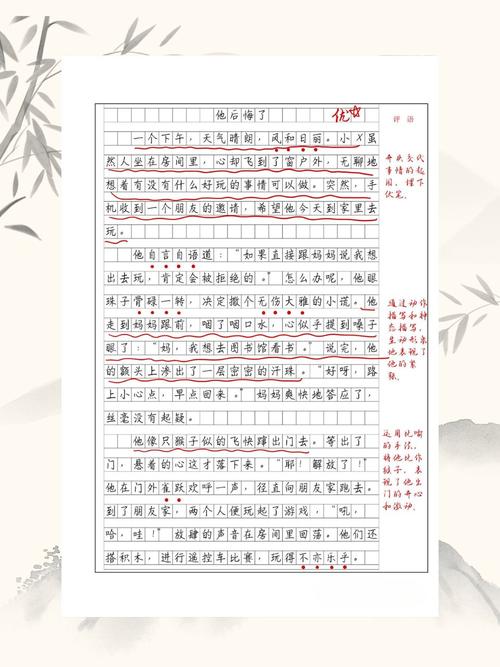 他后悔了
优
评语
一个下午，天气晴朗，风和日丽。小X虽
然人坐在房间里，心却飞到了窗户外，无聊地
想着有没有什么好玩的事情可以做。突然，手
机收到一个朋友的邀请，希望他今天到家里去
玩。
他自言自语道：“如果直接跟妈妈说我想
出去玩，肯定会被拒绝的。”怎么办呢，他眼
珠子骨碌一转，决定撒个无伤大雅的小谎。他
走到妈妈跟前，咽了咽口水，心似乎提到嗓子
眼了：“妈，我想去图书馆看书。”说完，他
的额头上渗出了一层密密的汗珠。“好呀，路
上小心点，早点回来。”妈妈爽快地答应了，
丝毫没有起疑。
他像只猴子似的飞快蹿出门去。等出了
门，悬着的心这才落下来。“耶！解放了！”
他在门外雀跃欢呼一声，径直向朋友家跑去。
到了朋友家，两个人便玩起了游戏，“吼，
哈，哇！”放肆的声音在房间里回荡。他们还
搭积木，进行遥控车比赛，玩得不亦乐乎。
开头交代
事情的起
因，埋下
伏笔。
通过动作
描写和神
态描写，
生动形象
地表现了
他的紧
张。
运用比喻
的手法，
将他比作
猴子，表
现了他出
门的开心
和激动。